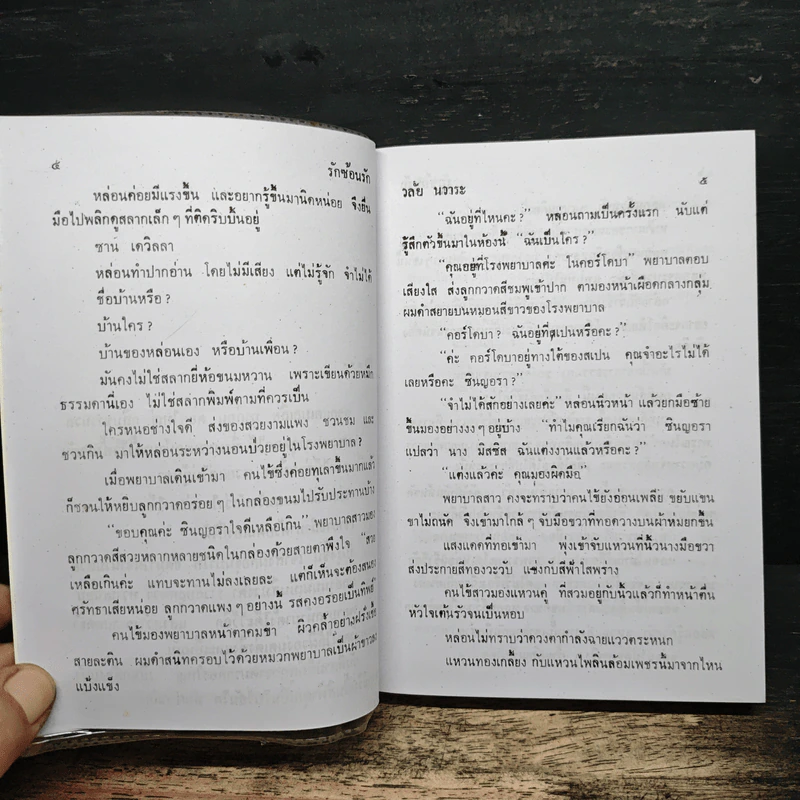 ๔
รักซ้อนรัก
หล่อนค่อยมีแรงขึ้น และอยากรู้ขึ้นมานิดหน่อย จึงยื่น
มือไปพลิกดูสลากเล็กๆ ที่ติดริบบิ้นอยู่
ซาน เดวิลลา
หล่อนทำปากอ่าน โดยไม่มีเสียง แต่ไม่รู้จัก จำไม่ได้
ชื่อบ้านหรือ?
บ้านใคร?
บ้านของหล่อนเอง หรือบ้านเพื่อน?
มันคงไม่ใช่สลากยี่ห้อขนมหวาน เพราะเขียนด้วยหมึก
ธรรมดานี่เอง ไม่ใช่สลากพิมพ์ตามที่ควรเป็น
ใครหนอช่างใจดี ส่งของสวยงามแพง ชวนชม และ
ชวนกิน มาให้หล่อนระหว่างนอนป่วยอยู่ในโรงพยาบาล?
เมื่อพยาบาลเดินเข้ามา คนไข้ซึ่งค่อยทุเลาขึ้นมากแล้ว
ก็ชวนให้หยิบลูกกวาดอร่อยๆ ในกล่องขนมไปรับประทานบ้าง
"ขอบคุณค่ะ ซินญอราใจดีเหลือเกิน" พยาบาลสาวมอง
ลูกกวาดสีสวยหลากหลายชนิดในกล่องด้วยสายตาพึงใจ "สวย
เหลือเกินค่ะ แทบจะทานไม่ลงเลยละ แต่ก็เห็นจะต้องสนอง
ศรัทธาเสียหน่อย ลูกกวาดแพงๆ อย่างนี้ รสคงอร่อยเป็นทิพย์"
คนไข้มองพยาบาลหน้าตาคมขำ ผิวคล้ำอย่างฝรั่งเชื้อ
สายละติน ผมดำสนิทครอบไว้ด้วยหมวกพยาบาลเป็นผ้าขาวลง
แป้งแข็ง
วลัย นวาระ
๕
"ฉันอยู่ที่ไหนคะ?" หล่อนถามเป็นครั้งแรก นับแต่
รู้สึกตัวขึ้นมาในห้องนี้ "ฉันเป็นใคร?"
"คุณอยู่ที่โรงพยาบาลค่ะ ในคอร์โดบา" พยาบาลตอบ
เสียงใส ส่งลูกกวาดสีชมพูเข้าปาก ตามองหน้าเผือดกลางกลุ่ม
ผมดำสยายบนหมอนสีขาวของโรงพยาบาล
"คอร์โดบา? ฉันอยู่ที่สเปนหรือคะ?"
"ค่ะ คอร์โดบาอยู่ทางใต้ของสเปน คุณจำอะไรไม่ได้
เลยหรือคะ ซินญอรา?"
"จำไม่ได้สักอย่างเลยค่ะ" หล่อนนิ่วหน้า แล้วยกมือซ้าย
ขึ้นมองอย่างงงๆ อยู่บ้าง "ทำไมคุณเรียกฉันว่า ซินญอรา
แปลว่า นาง มิสซิส ฉันแต่งงานแล้วหรือคะ?"
"แต่งแล้วค่ะ คุณมองผิดมือ"
พยาบาลสาว คงจะทราบว่าคนไข้ยังอ่อนเพลีย ขยับแขน
ขาไม่ถนัด จึงเข้ามาใกล้ๆ จับมือขวาที่ทอดวางบนผ้าห่มยกขึ้น
แสงแดดที่ทอเข้ามา พุ่งเข้าจับแหวนที่นิ้วนางมือขวา
ส่งประกายสีทองวะวับ แข่งกับสีฟ้าใสพร่าง
คนไข้สาวมองแหวนคู่ ที่สวมอยู่กับนิ้วแล้วก็ทำหน้าตื่น
หัวใจเต้นรัวจนเป็นหอบ
หล่อนไม่ทราบว่าดวงตากำลังฉายแววตระหนก
แหวนทองเกลี้ยง กับแหวนไพลินล้อมเพชรนี้มาจากไหน